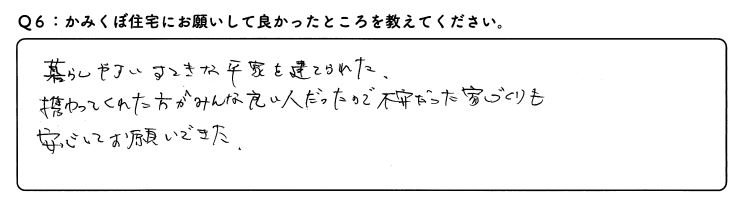 Q6：かみくぼ住宅にお願いして良かったところを教えてください。
暮らしやすいすてきな平家を建てられた。
携わってくれた方がみんな良い人だったので不安だった家づくりも
安心してお願いできた。